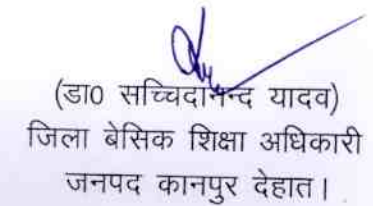 (डा0 सच्चिदानन्द यादव)
जिला बेसिक शिक्षा अधिकारी
जनपद कानपुर देहात।